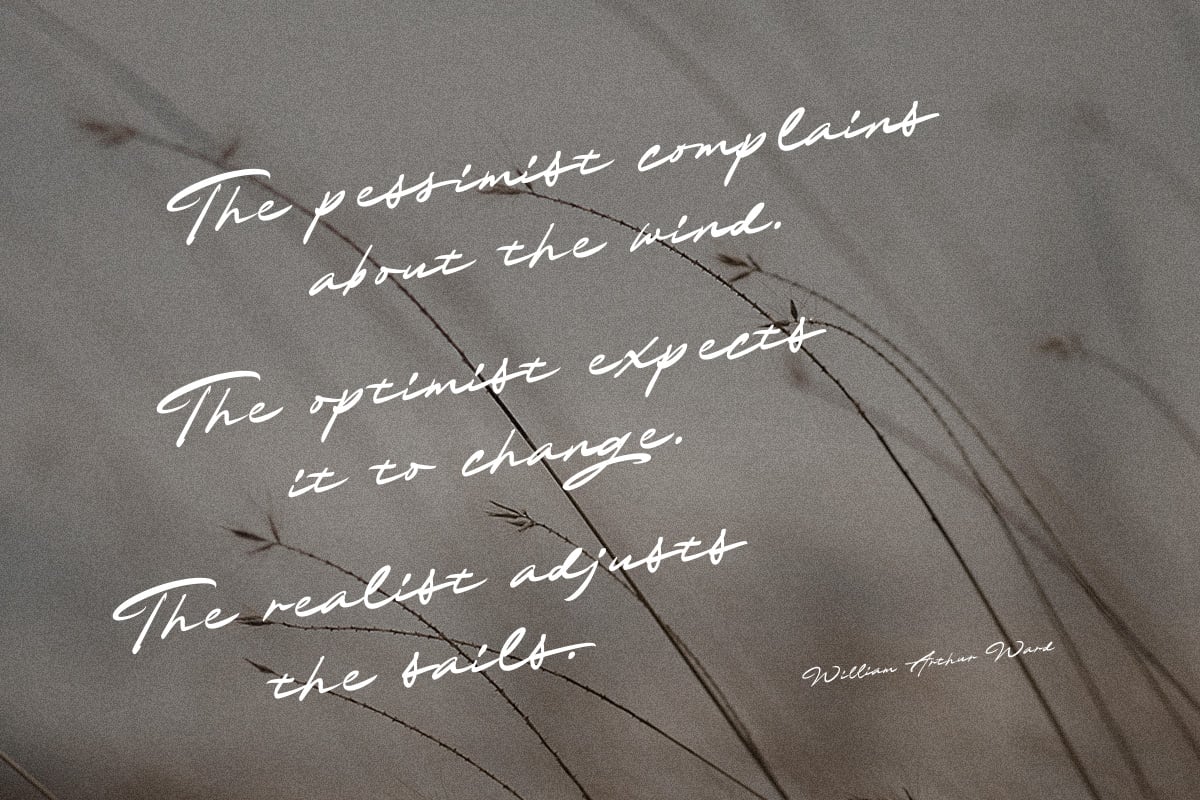 The pessimist complains
about the wind.
The optimist expects
it to change.
The realist adjusts
the sails.
William Arthur Ward